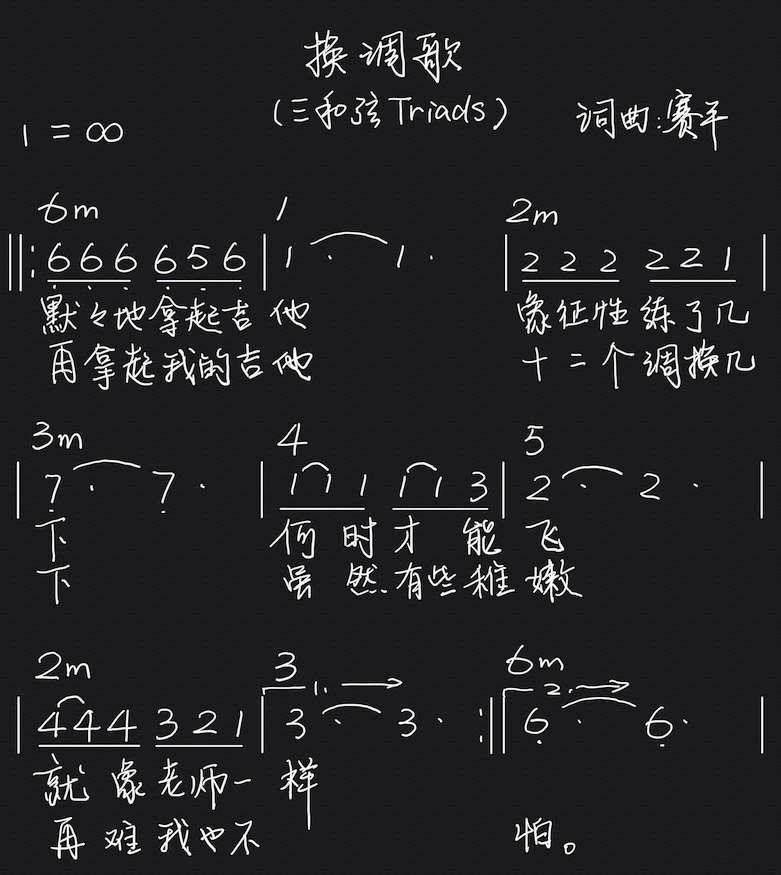 换调歌
(三和弦Triads)
1=∞
词曲:赛平
6m 1 2m
‖: 666 656 | 1 · 1 · | 222 221 |
默々地拿起吉他 象征性练了几
再拿起我的吉他 十二个调换几
3m 4 5
| 7 · 7 · | 111 113 | 2 · 2 · |
下 何时才能飞
下 虽然有些稚嫩
2m 3 6m
1. → 2. →
| 444 321 | 3 · 3 · :‖ 6 · 6 · |
就象老师一样
再难我也不 怕。